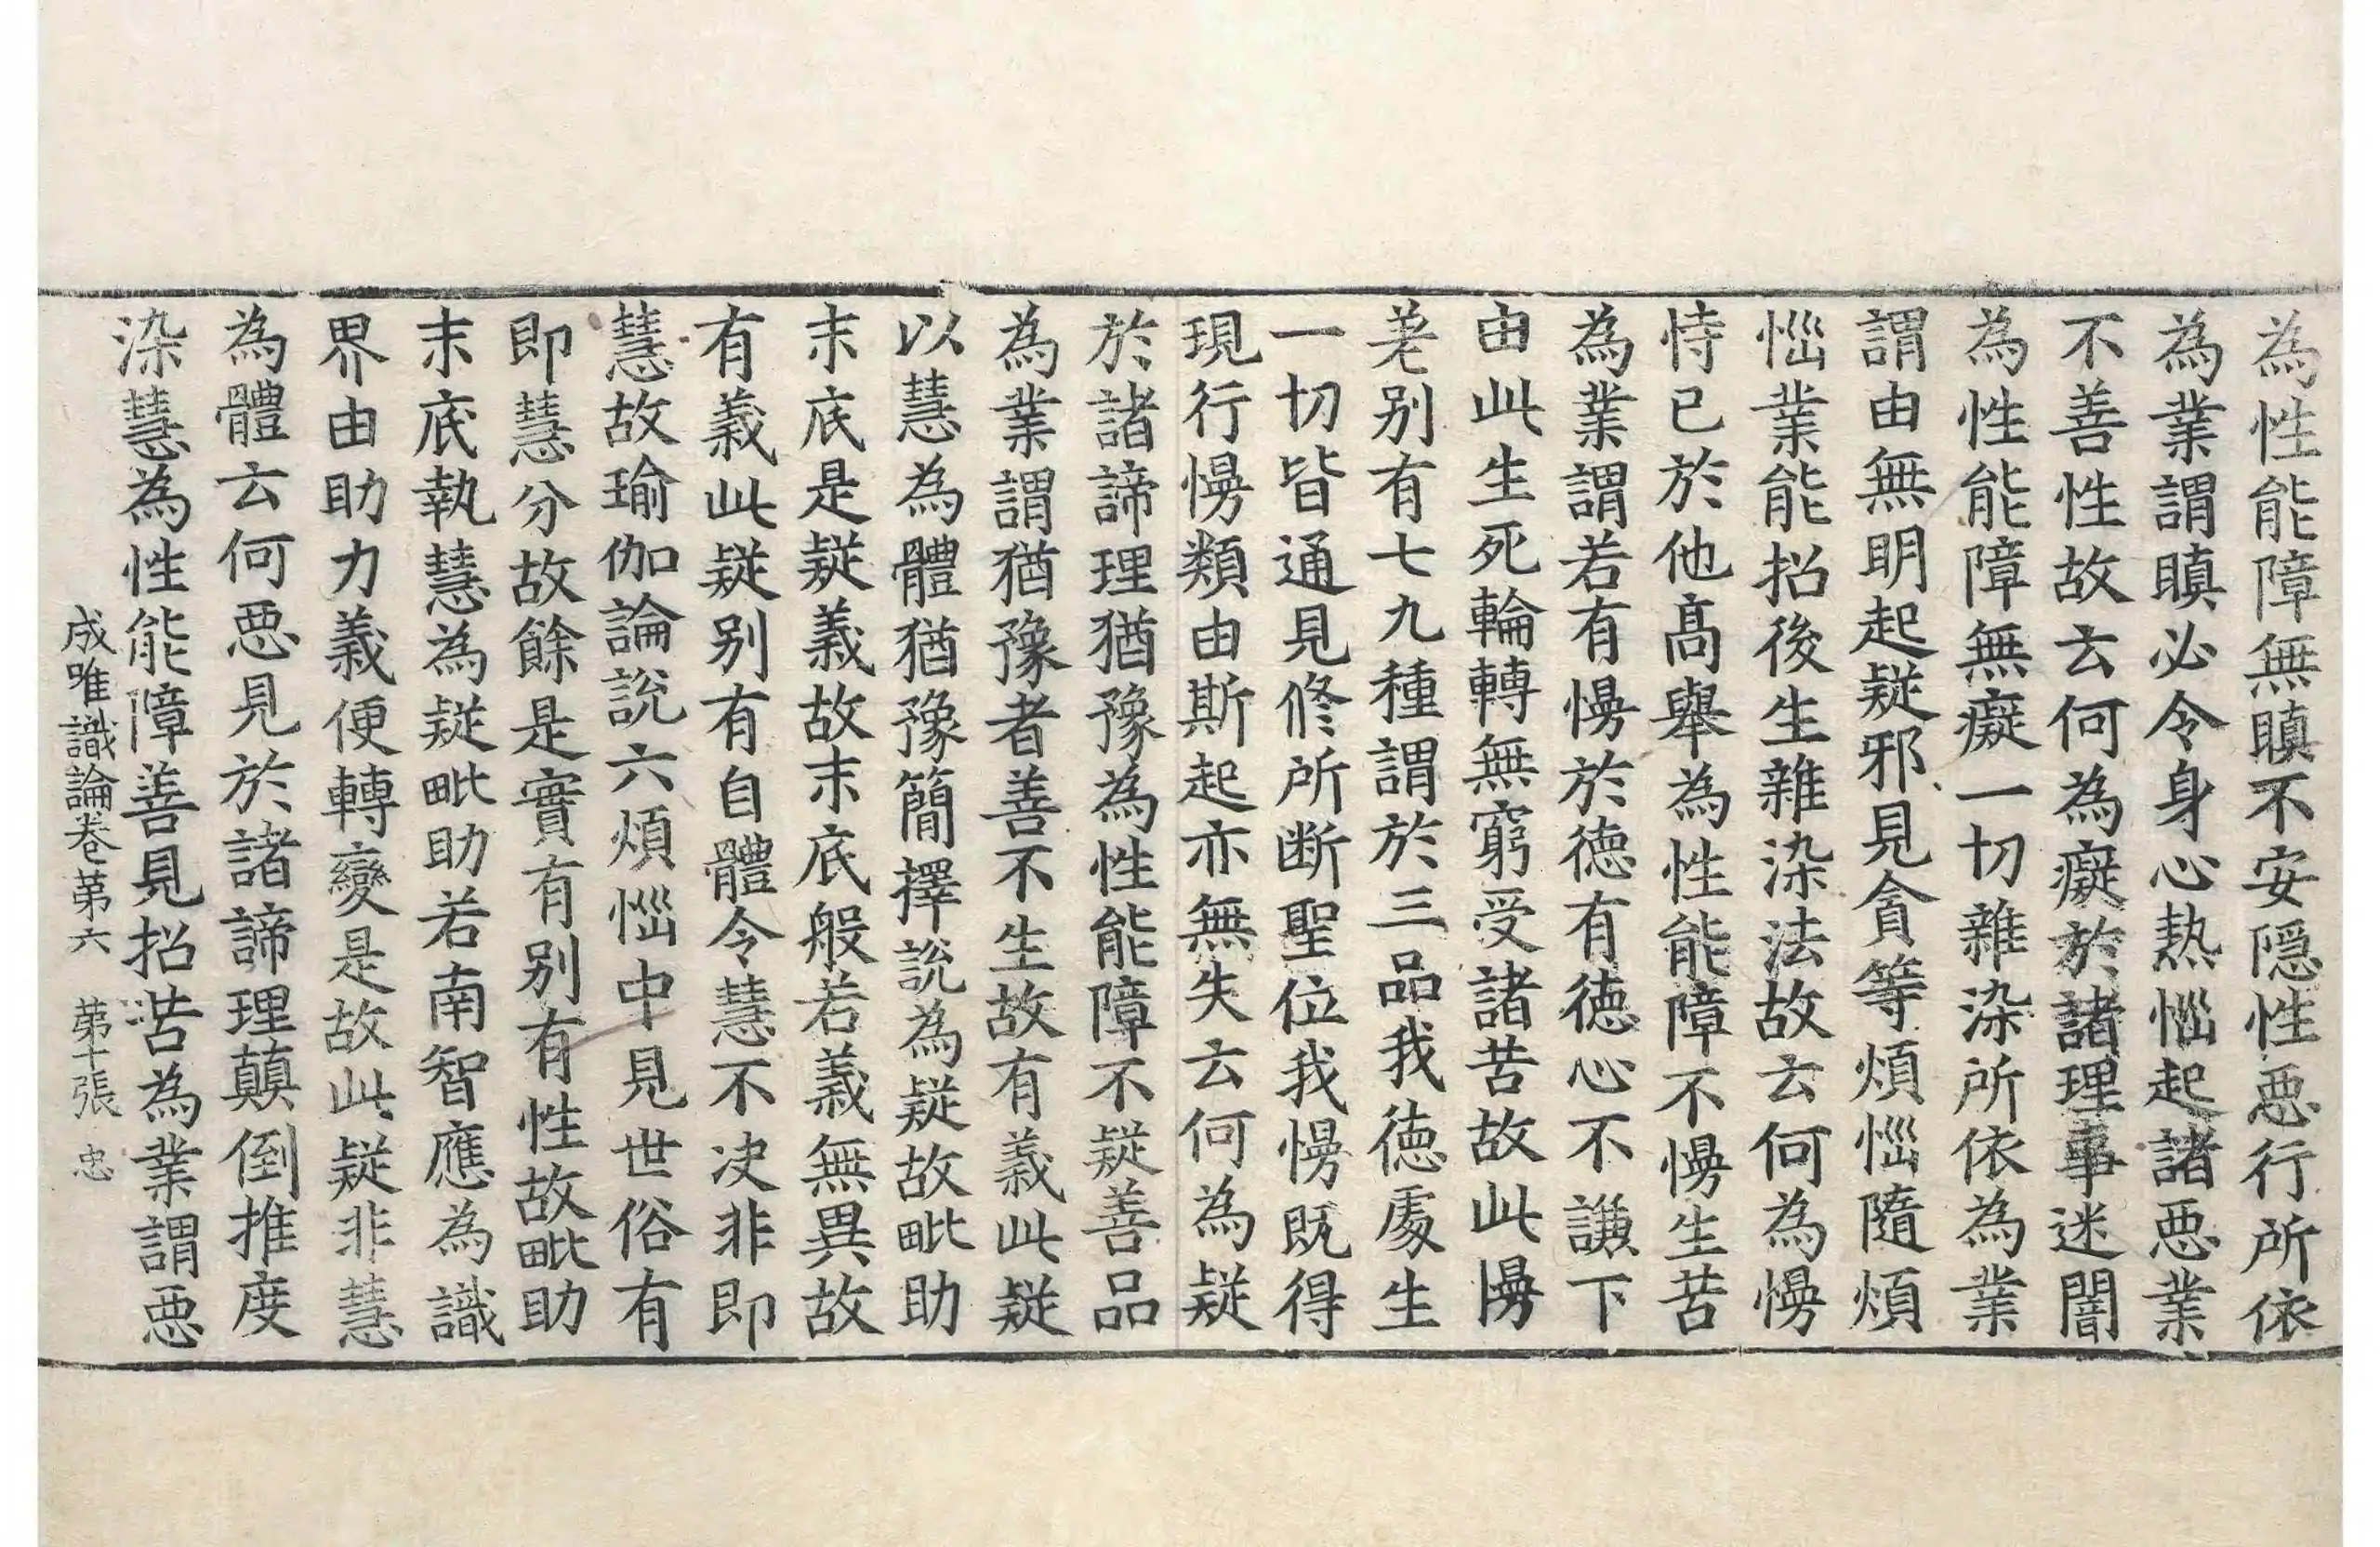 為性能障無瞋不安隱性惡行所依
為業謂瞋必令身心熱惱起諸惡業
不善性故云何為癡於諸理事迷闇
為性能障無癡一切雜染所依為業
謂由無明起疑邪見貪等煩惱隨煩
惱業能招後生雜染法故云何為慢
恃己於他高舉為性能障不慢生苦
為業謂若有慢於德有德心不謙下
由此生死輪轉無窮受諸苦故此慢
差別有七九種謂於三品我德處生
一切皆通見修所斷聖位我慢既得
現行慢類由斯起亦無失云何為疑
於諸諦理猶豫為性能障不疑善品
為業謂猶豫者善不生故有義此疑
以慧為體猶豫簡擇說為疑故毗助
末底是疑義故末底般若義無異故
有義此疑別有自體令慧不決非即
慧故瑜伽論說六煩惱中見世俗有
即慧分故餘是實有別有性故毗助
末底執慧為疑毗助若南智應為識
界由助力義便轉變是故此疑非慧
為體云何惡見於諸諦理顛倒推度
染慧為性能障善見招苦為業謂惡
成唯識論卷第六 第十張 忠